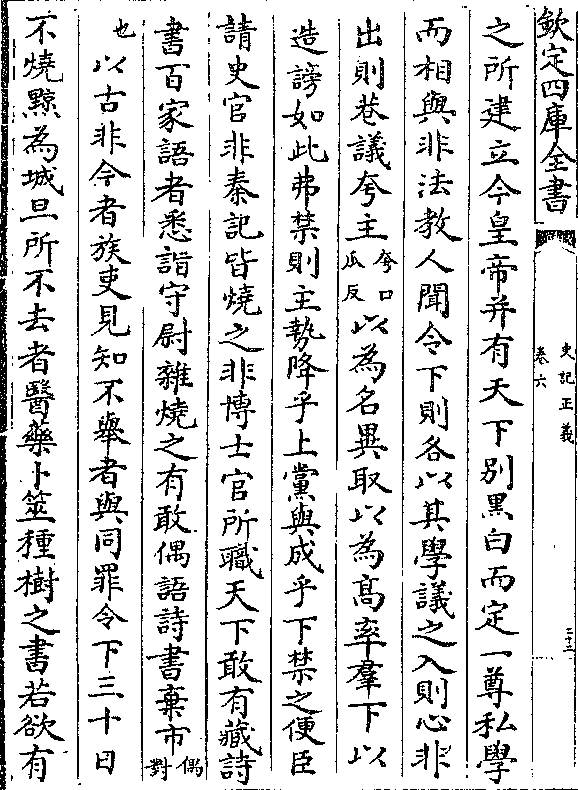 欽定四庫全書
史記正義
卷六
之所建立今皇帝并有天下別黑白而定一尊私學
而相與非法教人聞令下則各以其學議之入則心非
出則巷議夸主夸口瓜反以為名異取以為髙率羣下以
造謗如此弗禁則主勢降乎上黨與成乎下禁之便臣
請史官非秦記皆燒之非博士官所職天下敢有藏詩
書百家語者悉詣守尉雜燒之有敢偶語詩書棄市偶對
也以古非今者族吏見知不舉者與同罪令下三十日
不燒黥為城旦所不去者醫藥卜筮種樹之書若欲有